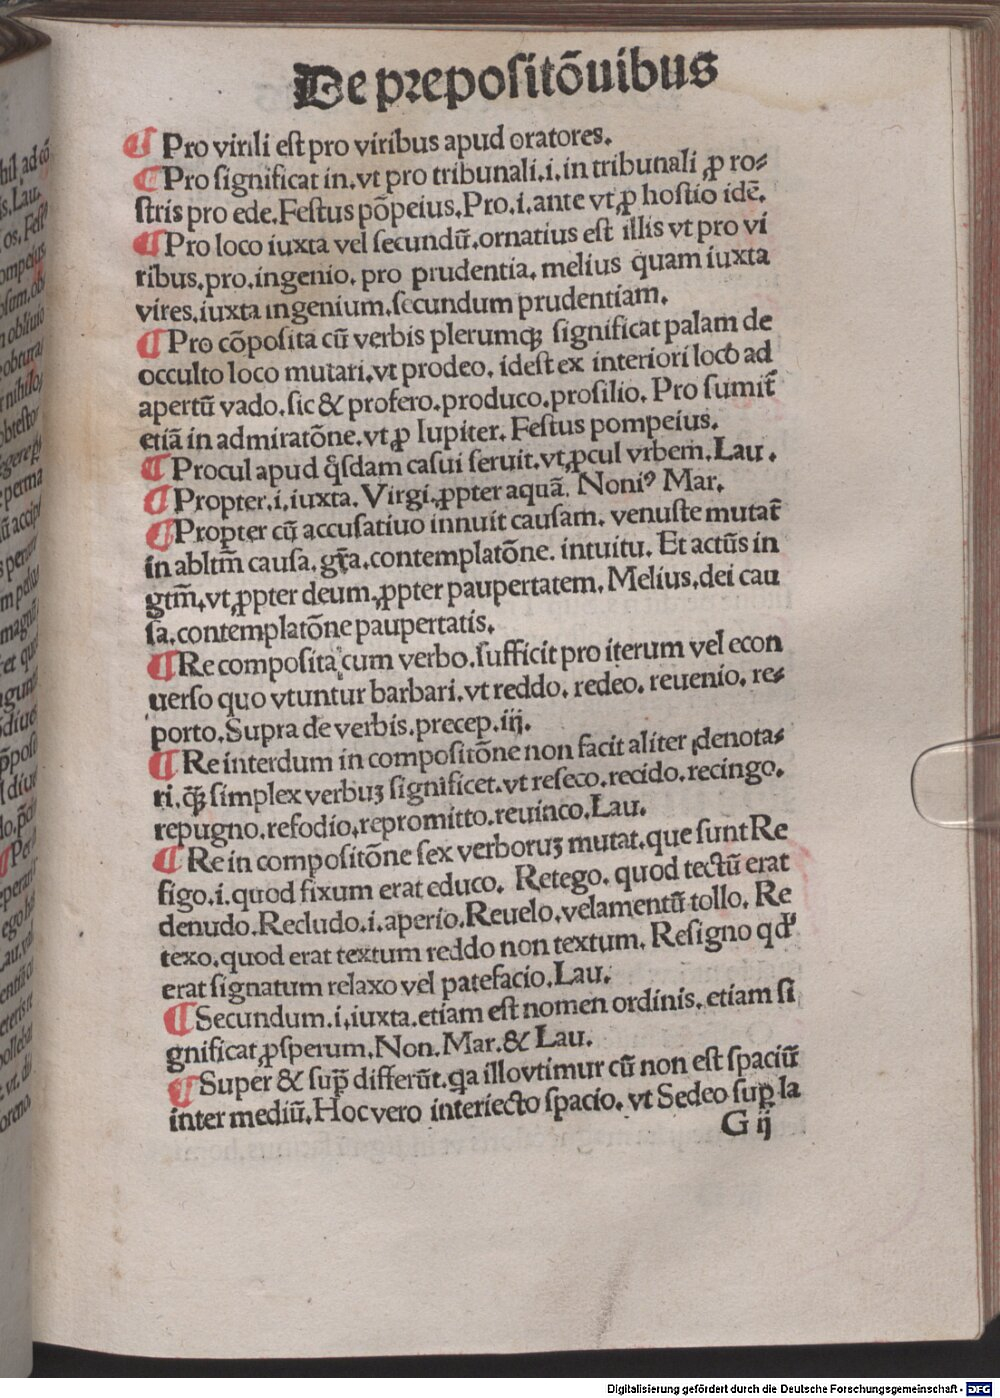 De prepositõuibus
¶ Pro virili est pro viribus apud oratores.
¶ Pro significat in. vt pro tribunali. i. in tribunali ꝓ ro⸗
stris pro ede. Festus põpeius. Pro. i. ante vt ꝓ hostio idẽ.
¶ Pro loco iuxta vel secundũ. ornatius est illis vt pro vi
ribus. pro. ingenio. pro prudentia. melius quam iuxta
vires. iuxta ingenium. secundum prudentiam.
¶ Pro cõposita cũ verbis plerumqꝫ significat palam de
occulto loco mutari. vt prodeo. idest ex interiori loco ad
apertũ vado. sic & profero. produco. prosilio. Pro sumit̃
etiã in admiratõne. vt ꝓ Iupiter. Festus pompeius.
¶ Procul apud q̊sdam casui seruit. vt ꝓcul vrbem. Lau.
¶ Propter. i. iuxta. Virgi. ꝓpter aquã. Noniꝰ Mar.
¶ Propter cũ accusatiuo innuit causam. venuste mutat̃
in abltm̃ causa. gr̃a. contemplatõne. intuitu. Et actũs in
gtm̃. vt ꝓpter deum. ꝓpter paupertatem. Melius. dei cau
sa. contemplatõne paupertatis.
¶ Re composita cum verbo. sufficit pro iterum vel econ
uerso quo vtuntur barbari. vt reddo. redeo. reuenio. re⸗
porto. Supra de verbis. precep. iij.
¶ Re interdum in compositõne non facit aliter denota⸗
ri. q̃ꝫ simplex verbuꝫ significet. vt reseco. recido. recingo.
repugno. refodio. repromitto. reuinco. Lau.
¶ Re in compositõne sex verboruꝫ mutat. que sunt Re
figo. i. quod fixum erat educo. Retego. quod tectũ erat
denudo. Recludo. i. aperio. Reuelo. velamentũ tollo. Re
texo. quod erat textum reddo non textum. Resigno qd'
erat signatum relaxo vel patefacio. Lau.
¶ Secundum. i. iuxta. etiam est nomen ordinis. etiam si
gnificat ꝓsperum. Non. Mar. & Lau.
¶ Super & sup̃ differũt. qa illo vtimur cũ non est spaciũ
inter mediũ. Hoc vero interiecto spacio. vt Sedeo suꝑ la
G ij
Digitalisierung gefördert durch die Deutsche Forschungsgemeinschaft - DFG